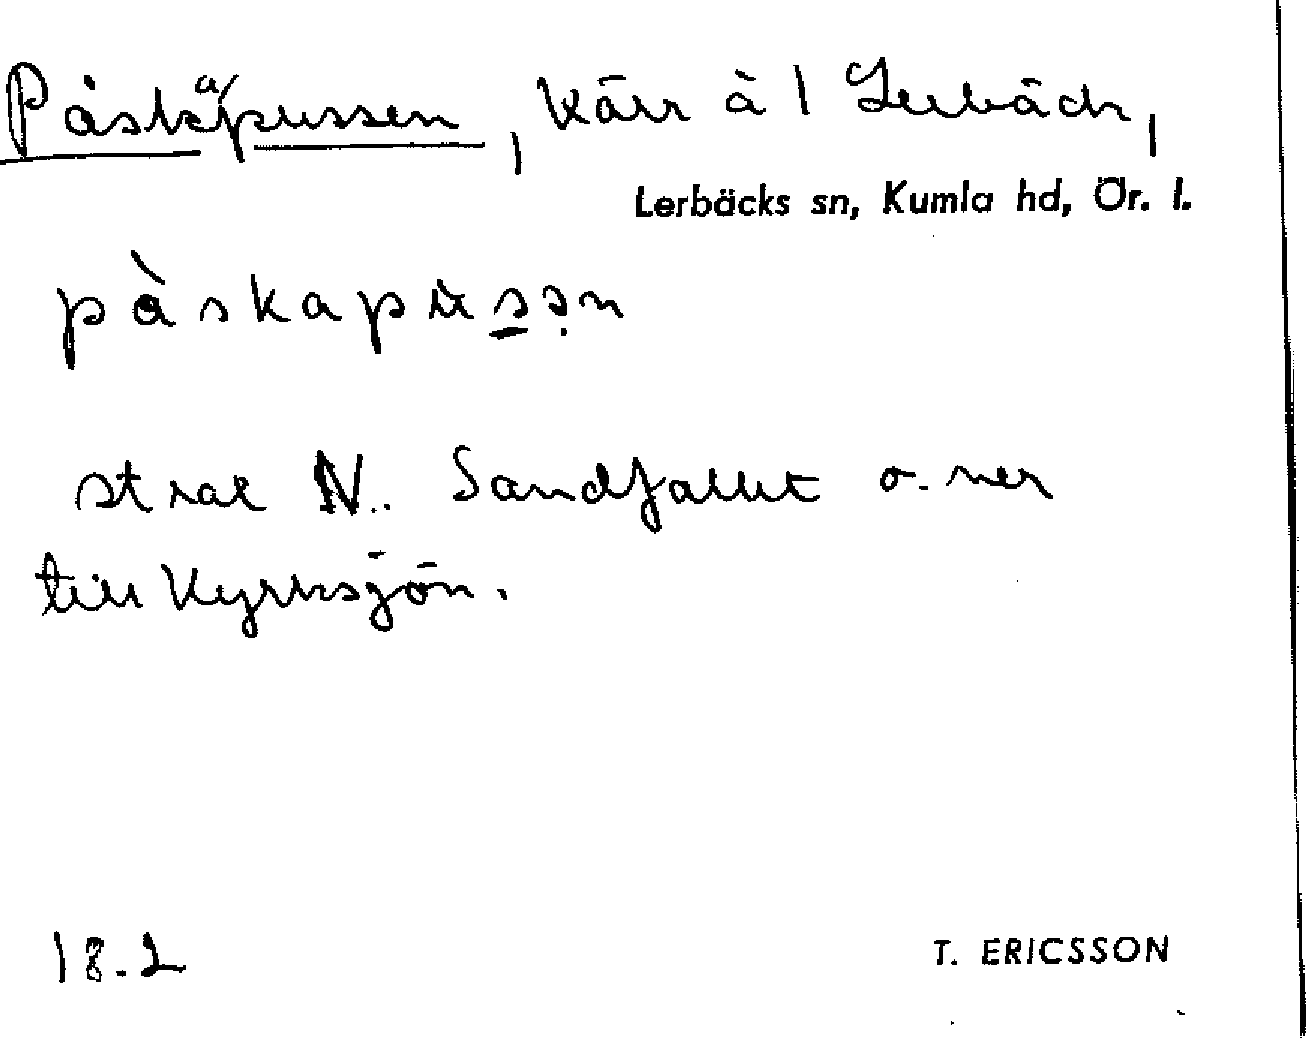 Påskapussen, kärr å 1 Lerbäck,
Lerbäcks sn, Kumla hd, Ör. l.
påskapussn
strax N. Sandfallet o. ner
till Kyrksjön.
18.2 T. ERICSSON